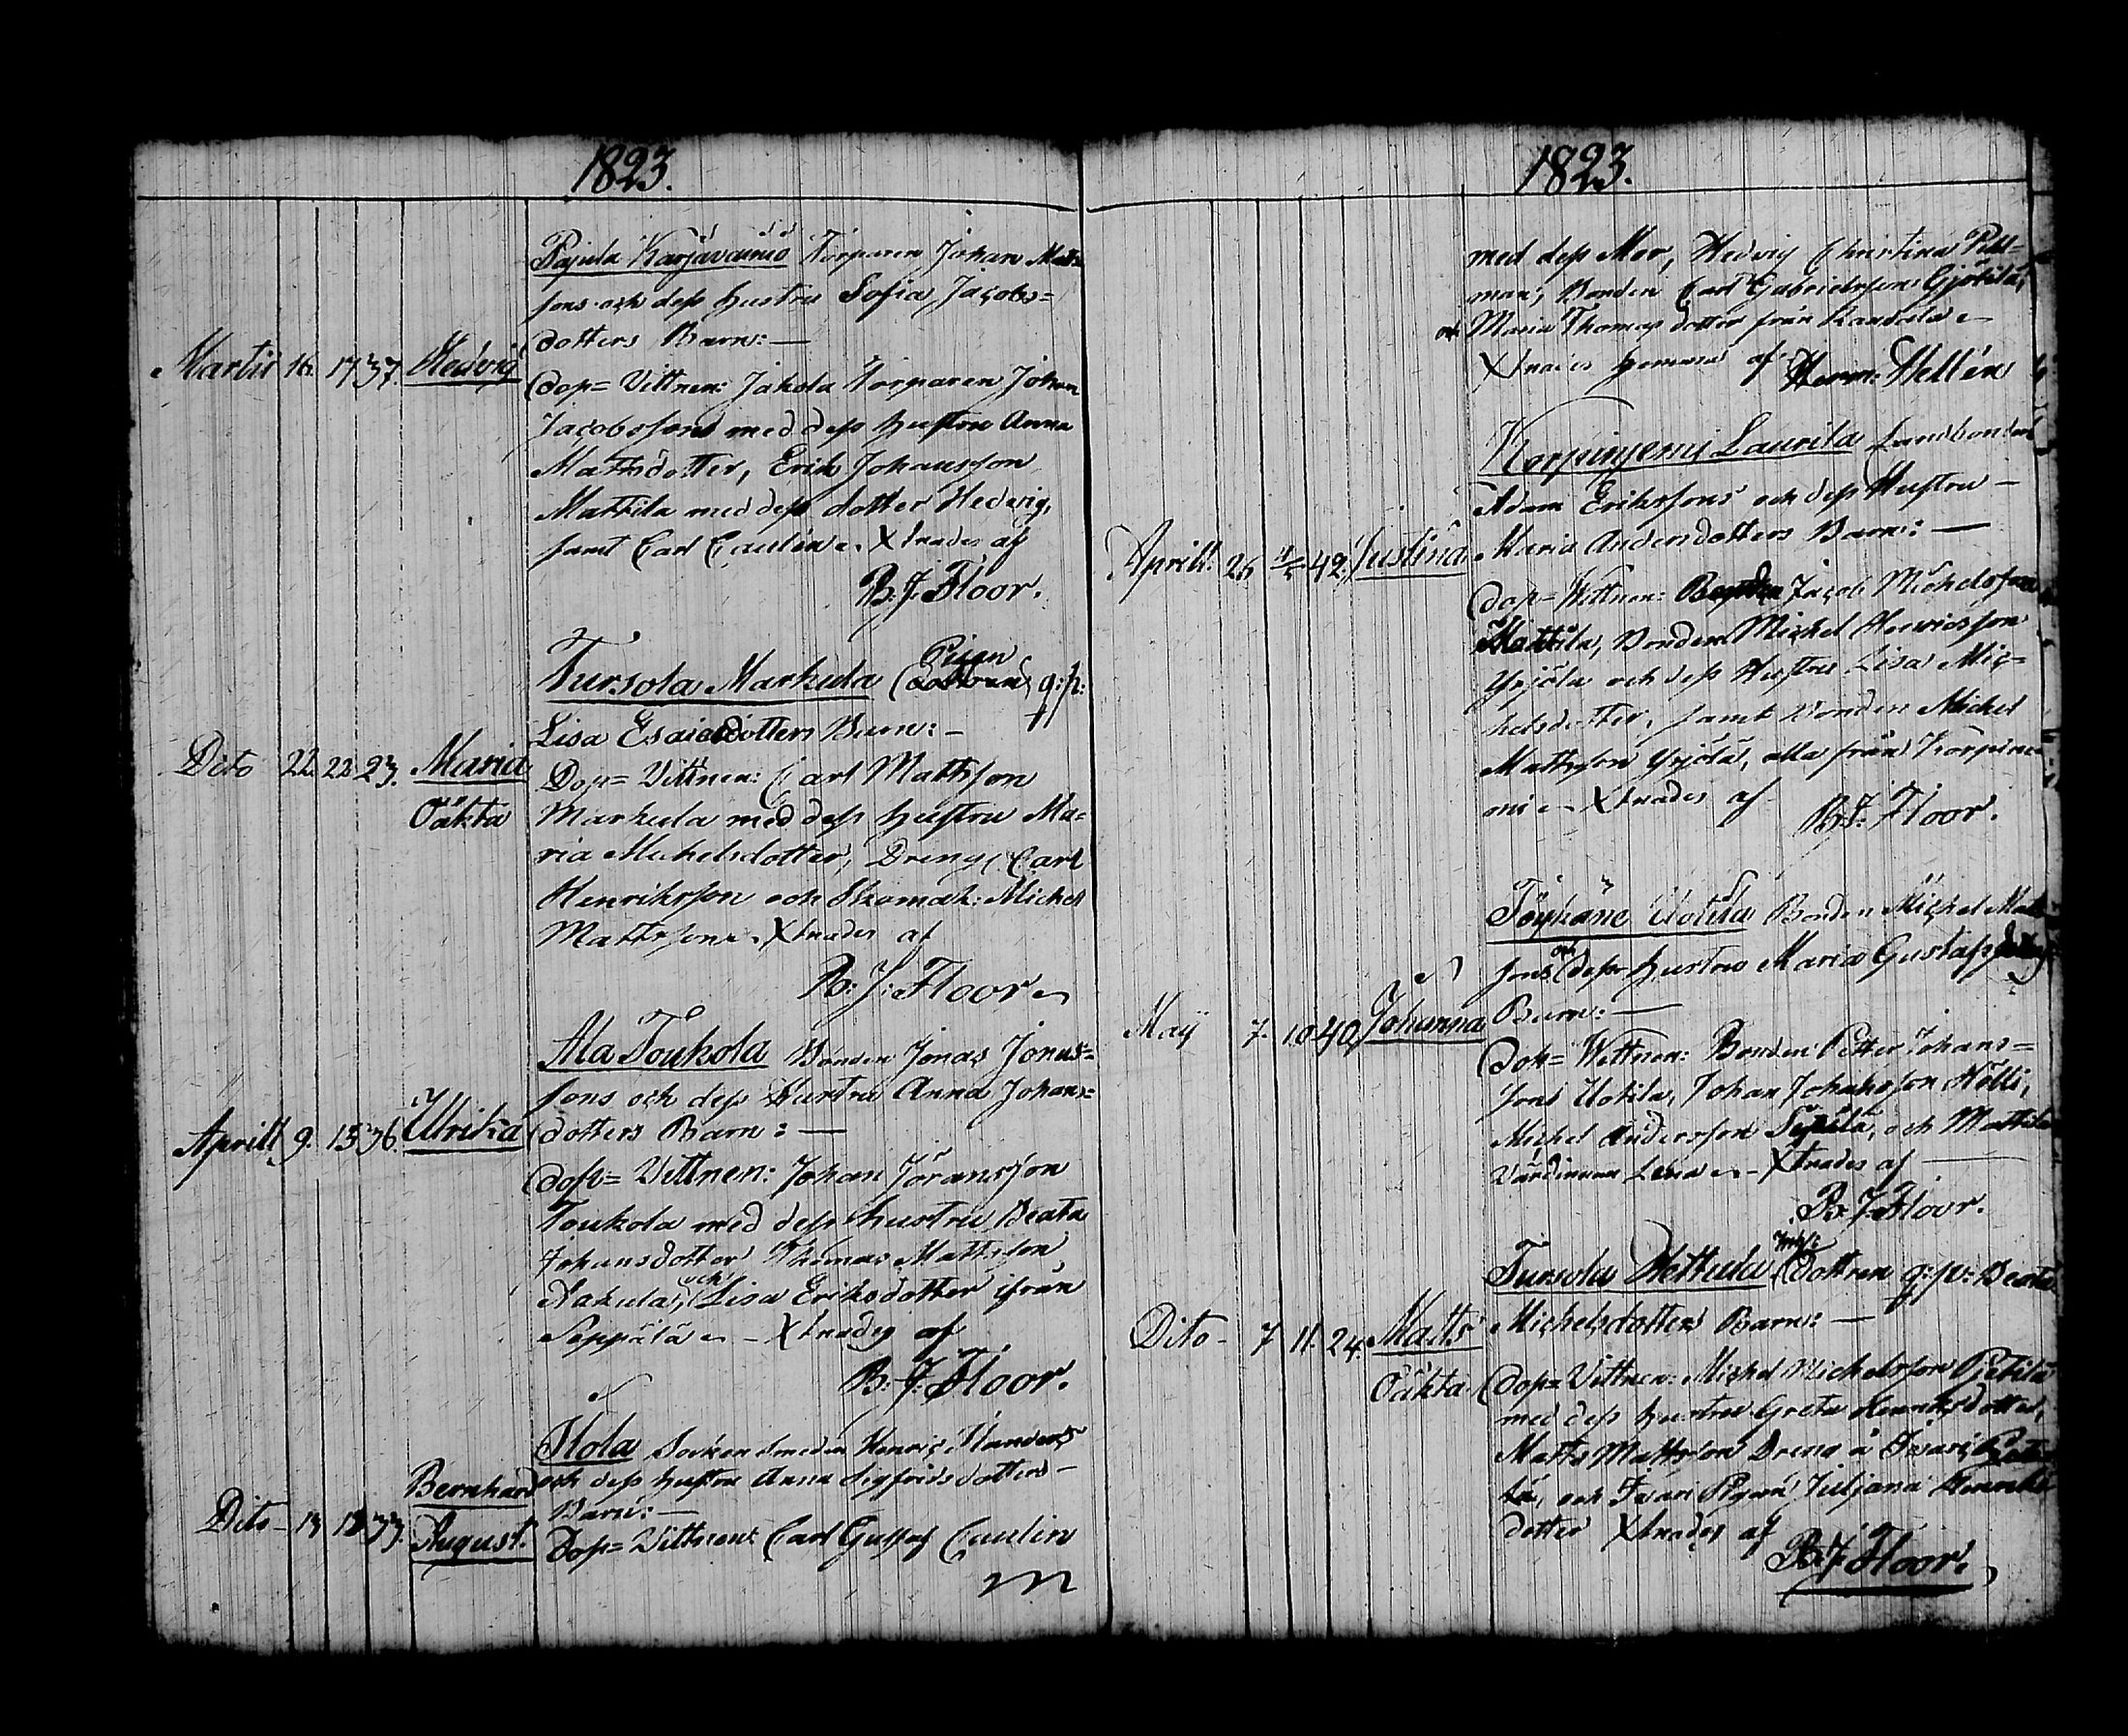 1823.
Pajula Karjavainio Torparen Johan Matts
sons och dess hustru Sofia Jacobs=
dotters Barn: —
Martii 16. 17. 37. Hedvig
Dop= Vittnen: Jakola Torparen Johan
Jacobsson med dess hustru Anna
Mattsdotter, Erik Johansson
Mattila med dess dotter Hedvig,
samt Carl Caulin. Xtnades af
B. J. Floor.
Tursola Markula Pigan q: p:
Lisa Esaiædotters Barn: —
Dito 22. 22. 23. Maria
Oäkta
Dop= Vittnen: Carl Mattsson
Markula med dess hustru Ma=
ria Michelsdotter, Dreng Carl
Henriksson och Skomak: Michel
Mattsson. Xtnades af
B: J: Floor
Ala Toukola Bonden Jonas Jonas=
sons och dess Hustru Anna Johans=
dotters Barn: —
Aprill 9. 15. 36. Ulrika
Dop= Vittnen: Johan Jöransson
Toukola med dess hustru Beata
Johansdotter Thomas Mattsson
Aakula, och Lisa Eriksdotter ifrån
Seppälä — Xtnades af
B. J. Floor.
Ilola Sockensmeden Henric
och dess hustru Anna Sigfridsdotters —
Barn: —
Dito 13 18 33. Bernhard
August.
Dop= Vittnen: Carl Gustaf Caulin
1823.
med dess Mor, Hedvig Christina
man, Bonden Carl Gabrielsson
och Maria Thomasdotter från
Xtnades hemma af Herm: Hellén
Korpinyemi Laurila Landbonden
Adam Erikssons och dess Hustru —
Maria Andersdotters Barn: —
Aprill: 26 42. Justina
Dop= Wittnen: Jacob Michelsson
Mattila, Bonden Michel Henricsson
Yrjölä och dess Hustru Lisa Mic=
helsdotter, samt Bonden Michel
Mattsson Yrjölä, alla från Korpine=
mi — Xtnades af
B. J. Floor.
Uotila Bonden Michel Matts
sons och dess hustru Maria Gustafsdotters
Barn: —
Maij 7. 10 40. Johanna
Dop= Wittnen: Bonden Petter Johans=
sons Uotila, Johan Johansson Hölli,
Michel Andersson Sepälä, och Mattila
Värdinnan Lena — Xtnades af —
B. J. Floor.
Tursola Hettula, Dottren q: p: Beata
Michelsdotters Barn: —
Dito — 7 11. 24. Matts
Oäkta
Dop= Vittnen: Michel Michelsson
med dess hustru Greta Henriksdotter,
Matts Mattsson Dreng å
och Pigan Juljana Henriks
dotter Xtnades af
B. J. Floor.